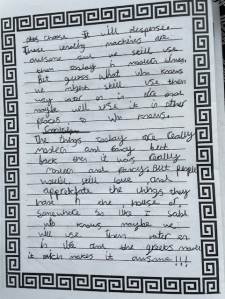 choose it will dispense.
These vending machines are
awesome and we still use
them today in modern times,
But guess what who knows
we might still use them
way later on in life and
maybe will use it in other
places so who knows.
The things today are Really
modern and fancy but
back then it was Really
modern and fancy. But people
would still love and
appreciate the things they
have in the house, or
somewhere so like I said
who knows maybe we
will use them later on
in life and the greeks made
it which makes it awsome!!!